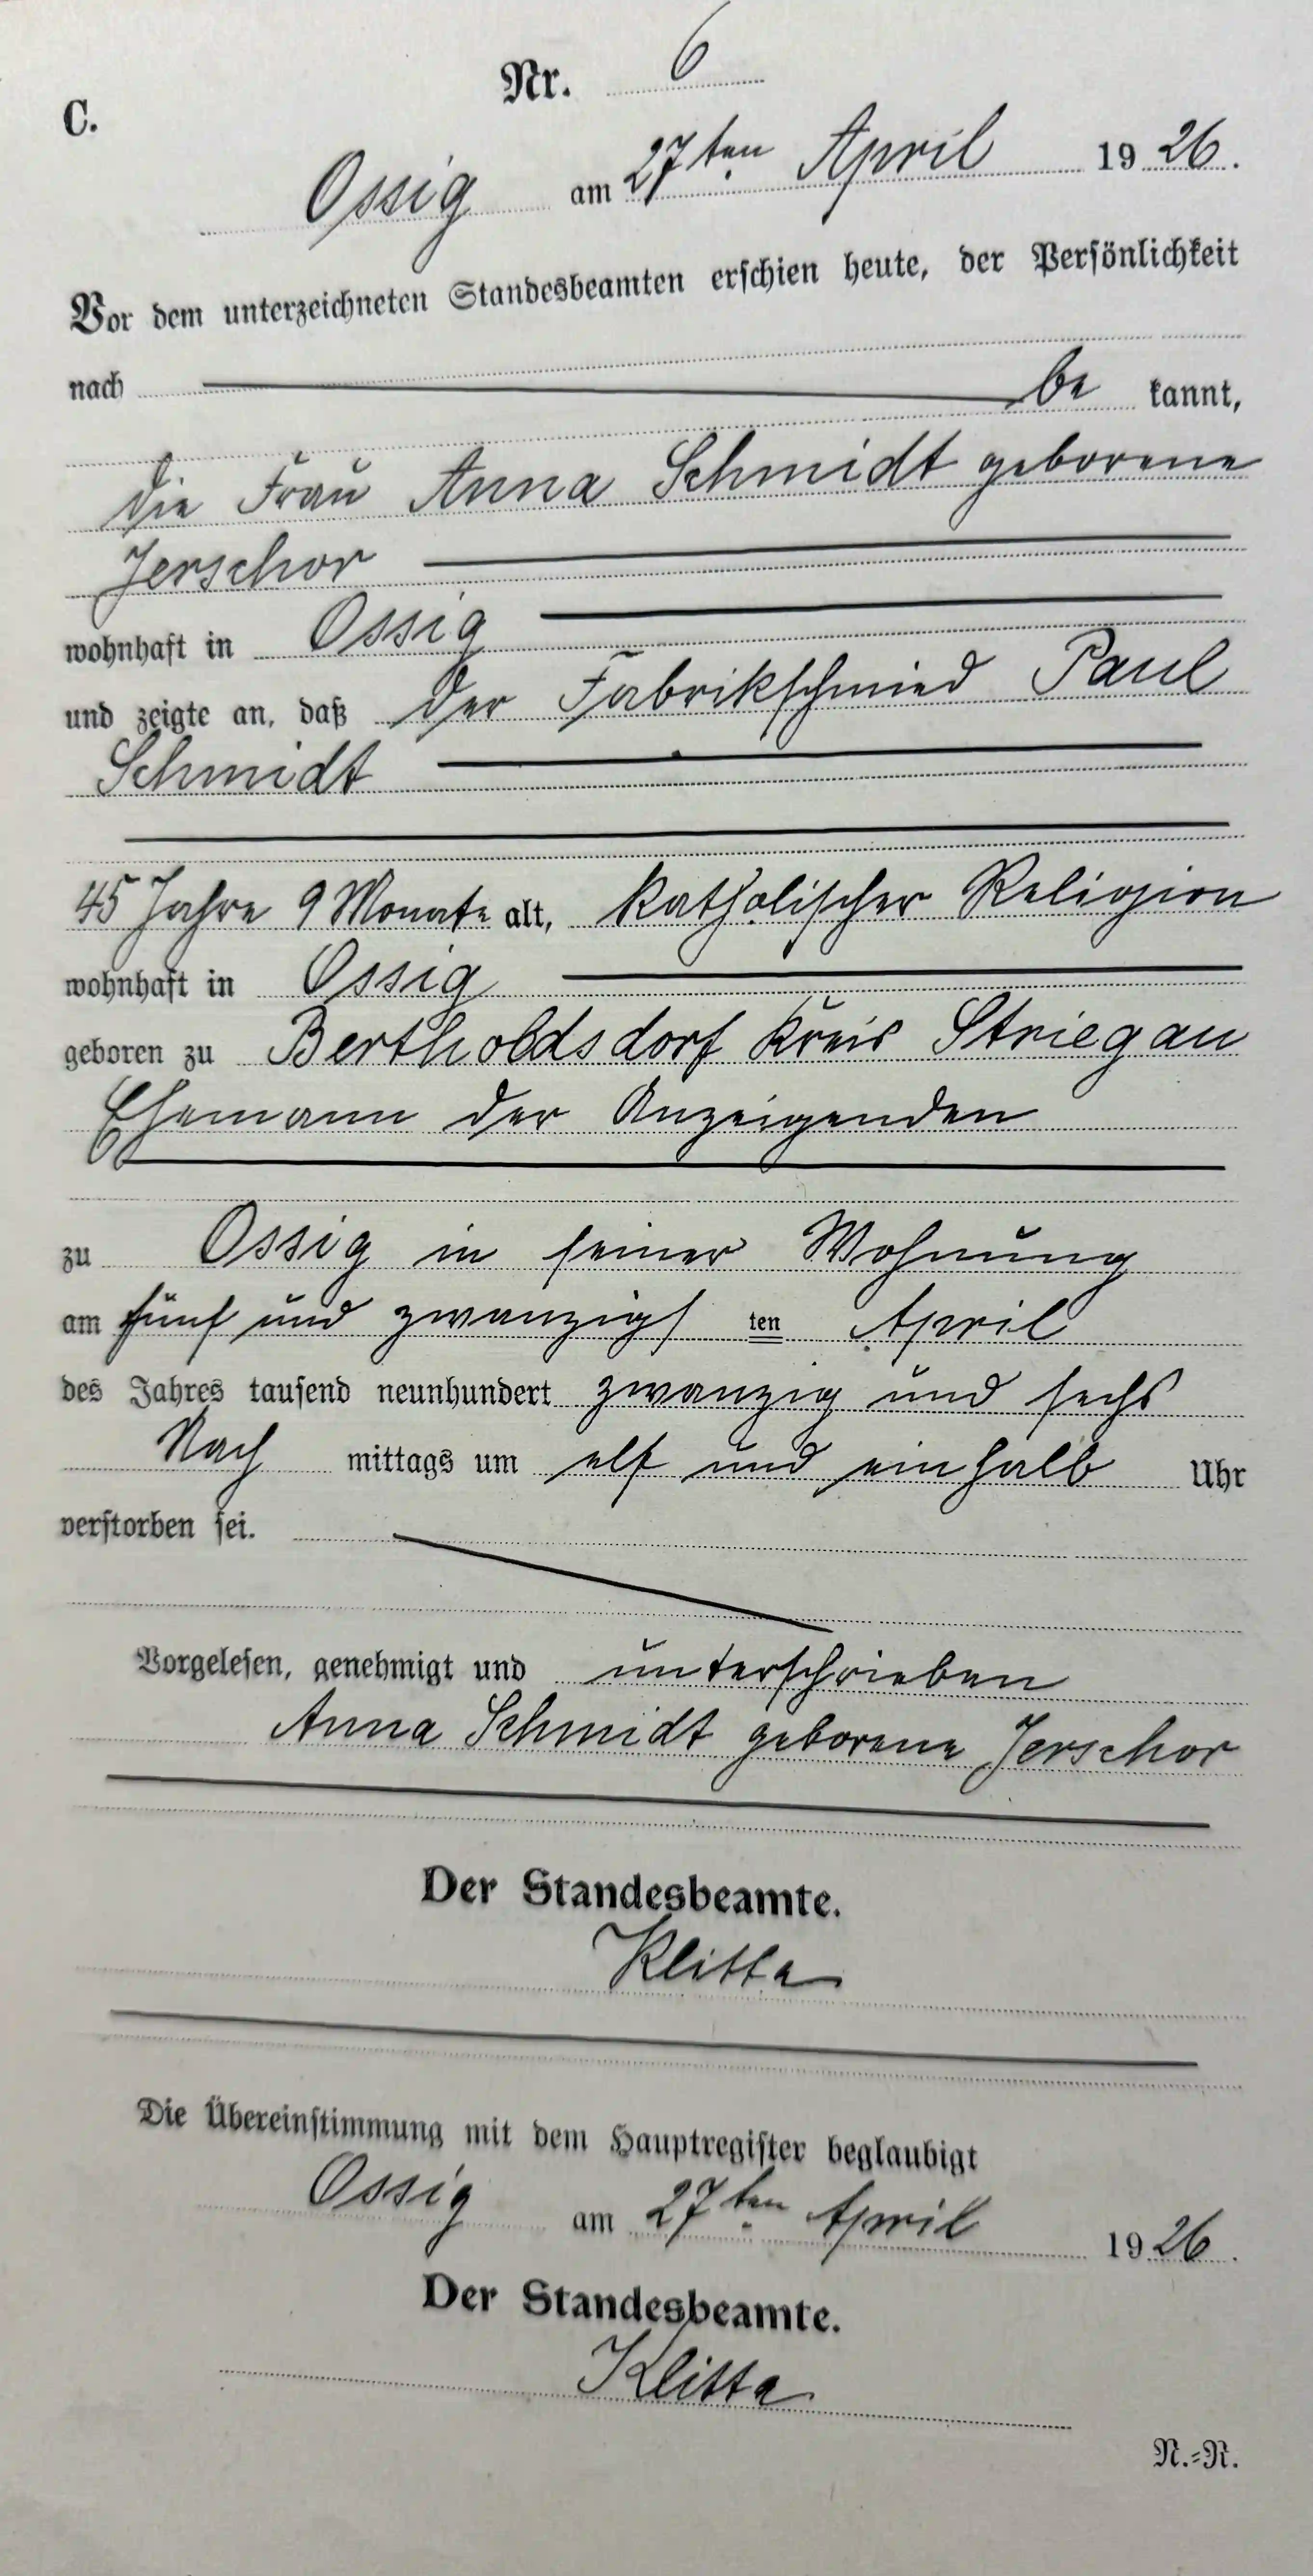 Nr. 6
C.
Ossig am 27ten April 1926.
Vor dem unterzeichneten Standesbeamten erschien heute, der Persönlichkeit
nach be kannt,
die Frau Anna Schmidt geborene
Jerschor
wohnhaft in Ossig
und zeigte an, daß der Fabrikschmied Paul
Schmidt
45 Jahre 9 Monate alt, katholischer Religion
wohnhaft in Ossig
geboren zu Bertholdsdorf Kreis Striegau
Ehemann der Anzeigenden
zu Ossig in seiner Wohnung
am fünf und zwanzigs ten April
des Jahres tausend neunhundert zwanzig und sechs
Nach mittags um elf und einhalb Uhr
verstorben sei.
Vorgelesen, genehmigt und unterschrieben
Anna Schmidt geborene Jerschor
Der Standesbeamte.
Klitta
Die Übereinstimmung mit dem Hauptregister beglaubigt
Ossig am 27ten April 1926.
Der Standesbeamte.
Klitta
N.=R.